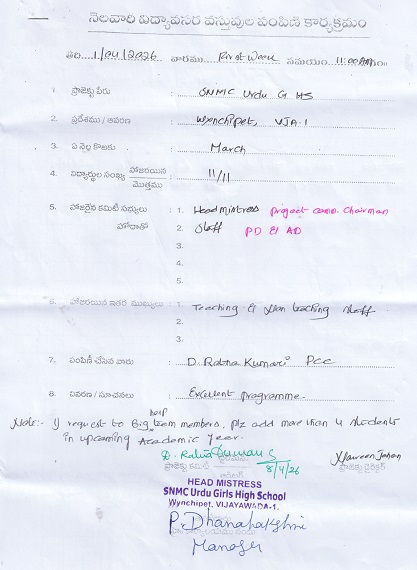 నెలవారి విద్యావసర వస్తువుల పంపిణి కార్యక్రమం
తేది 1/04/2026 వారము First Week సమయం 11:00Am
1. ప్రాజెక్టు పేరు : SNMC Urdu G HS
2. ప్రదేశము / ఆవరణ : Wynchipet, VJA-1
3. ఏ నెల కొరకు : March
4. విద్యార్థుల సంఖ్య హాజరయిన / మొత్తము : 11/11
5. హాజరైన కమిటీ సభ్యులు : 1. Headmistress project comm. Chairman
హోదాతో 2. Staff PD & AD
3.
4.
5.
6. హాజరయిన ఇతర ముఖ్యులు : 1. Teaching & Non teaching staff
2.
3.
7. పంపిణీ చేసిన వారు : D. Ratna Kumari PCC
8. వివరణ / సూచనలు : Excellent programme.
Note:- I request to Big help team members, plz add more than 4 students
in upcoming Academic Year.
D. Ratna Kumari
8/4/26
Naveen Jahan
ప్రాజెక్టు కమిటీ ప్రాజెక్టు డైరెక్టర్
HEAD MISTRESS
SNMC Urdu Girls High School
Wynchipet, VIJAYAWADA-1.
P. Dhanalakshmi
Manager